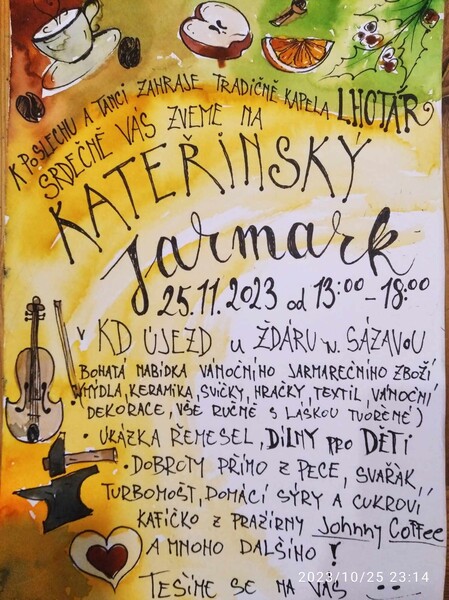 K POSLECHU A TANCI ZAHRAJE TRADIČNĚ KAPELA LHOTÁR
SRDEČNĚ VÁS ZVEME NA
KATEŘINSKÝ
Jarmark
25.11.2023 od 13:00 - 18:00
V KD ÚJEZD u ŽĎÁRU N. SÁZAVOU
BOHATÁ NABÍDKA VÁNOČNÍHO JARMAREČNÍHO ZBOŽÍ
(MÝDLA, KERAMIKA, SVÍČKY, HRAČKY, TEXTIL, VÁNOČNÍ
DEKORACE, VŠE RUČNĚ S LÁSKOU TVOŘENÉ)
• UKÁZKA ŘEMESEL, DÍLNY PRO DĚTI
• DOBROTY PŘÍMO Z PECE, SVAŘÁK,
TURBOMOŠT, DOMÁCÍ SÝRY A CUKROVÍ
KAFÍČKO Z PRAŽÍRNY Johnny Coffee
A MNOHO DALŠÍHO !
TEŠÍME SE NA VÁS
2023/10/25 23:14